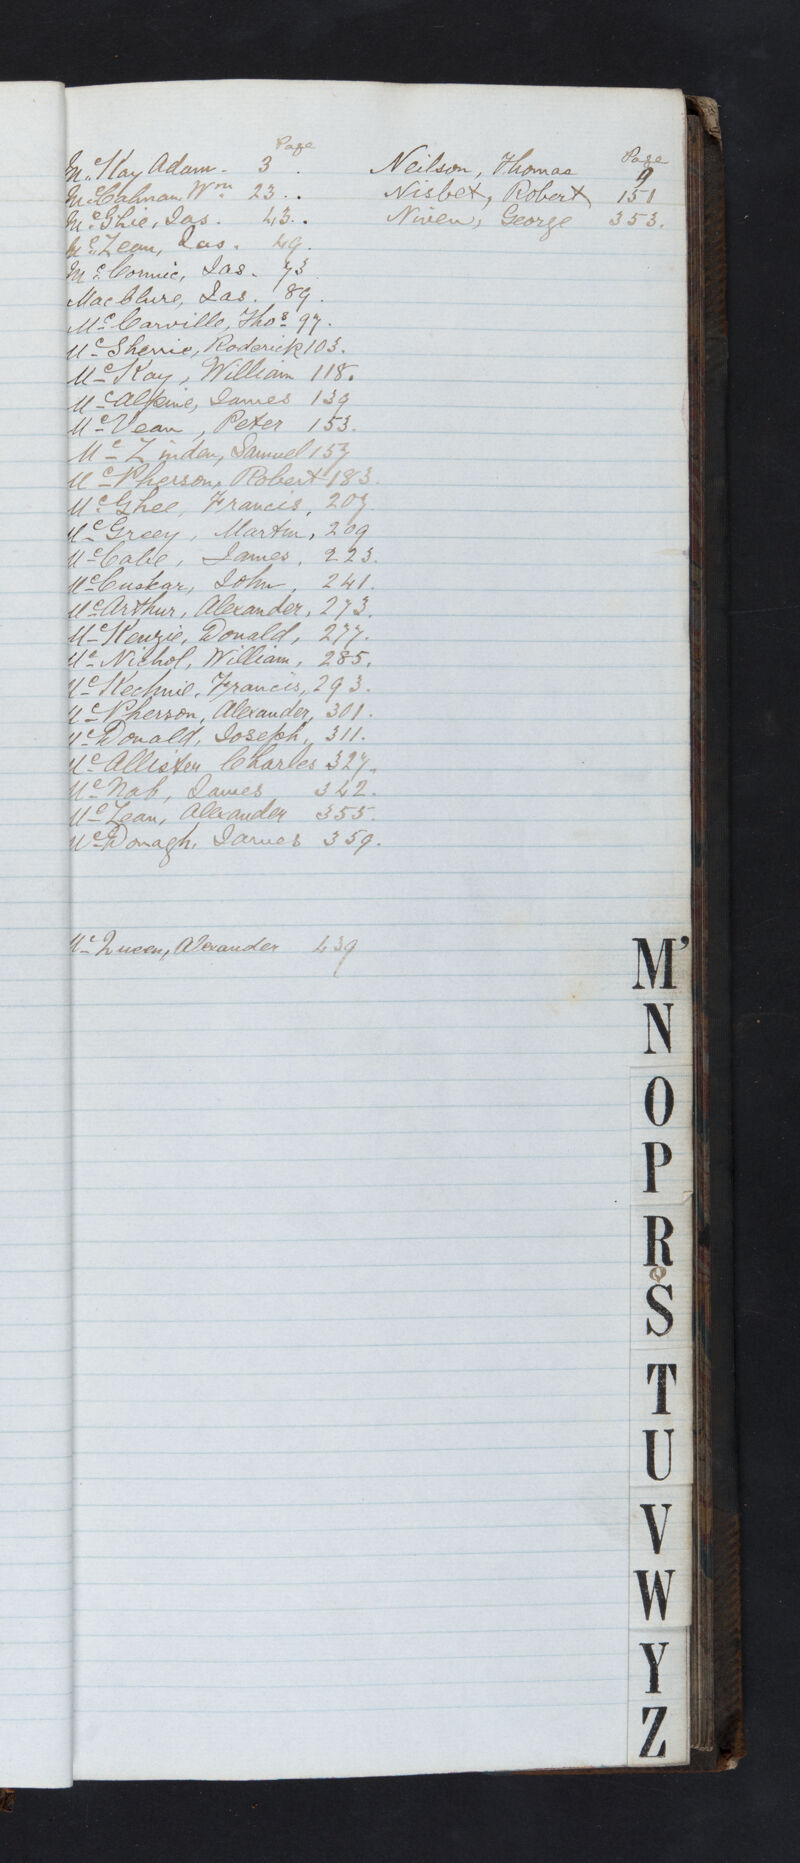 Page
McKay Adam. 3.
McCalman Wm 23..
McGhie, Jas. 43..
McLean, Jas. 49.
McConnie, Jas. 73
MacClure, Jas. 89.
McCarville, Thos 97.
McSherrie, Roderick 103.
McKay, William 118.
McAlpine, James 139
McVean, Peter 153.
McLinden, Samuel 157
McPherson, Robert 183.
McGhee, Francis, 207.
McGreey, Martin, 209
McCabe, James, 223.
McCuskar, John, 241.
McArthur, Alexander, 273.
McKenzie, Donald, 277.
McNichol, William, 285.
McKechnie, Francis, 293.
McPherson, Alexander, 301.
McDonald, Joseph, 311.
McAllister Charles 327.
McNab, James 342.
McLean, Alexander 355.
McDonagh, James 359.
McQueen, Alexander 439
Page
Neilson, Thomas 9
Nisbet, Robert 151
Niven, George 353.
M'
N
O
P
R
S
T
U
V
W
Y
Z